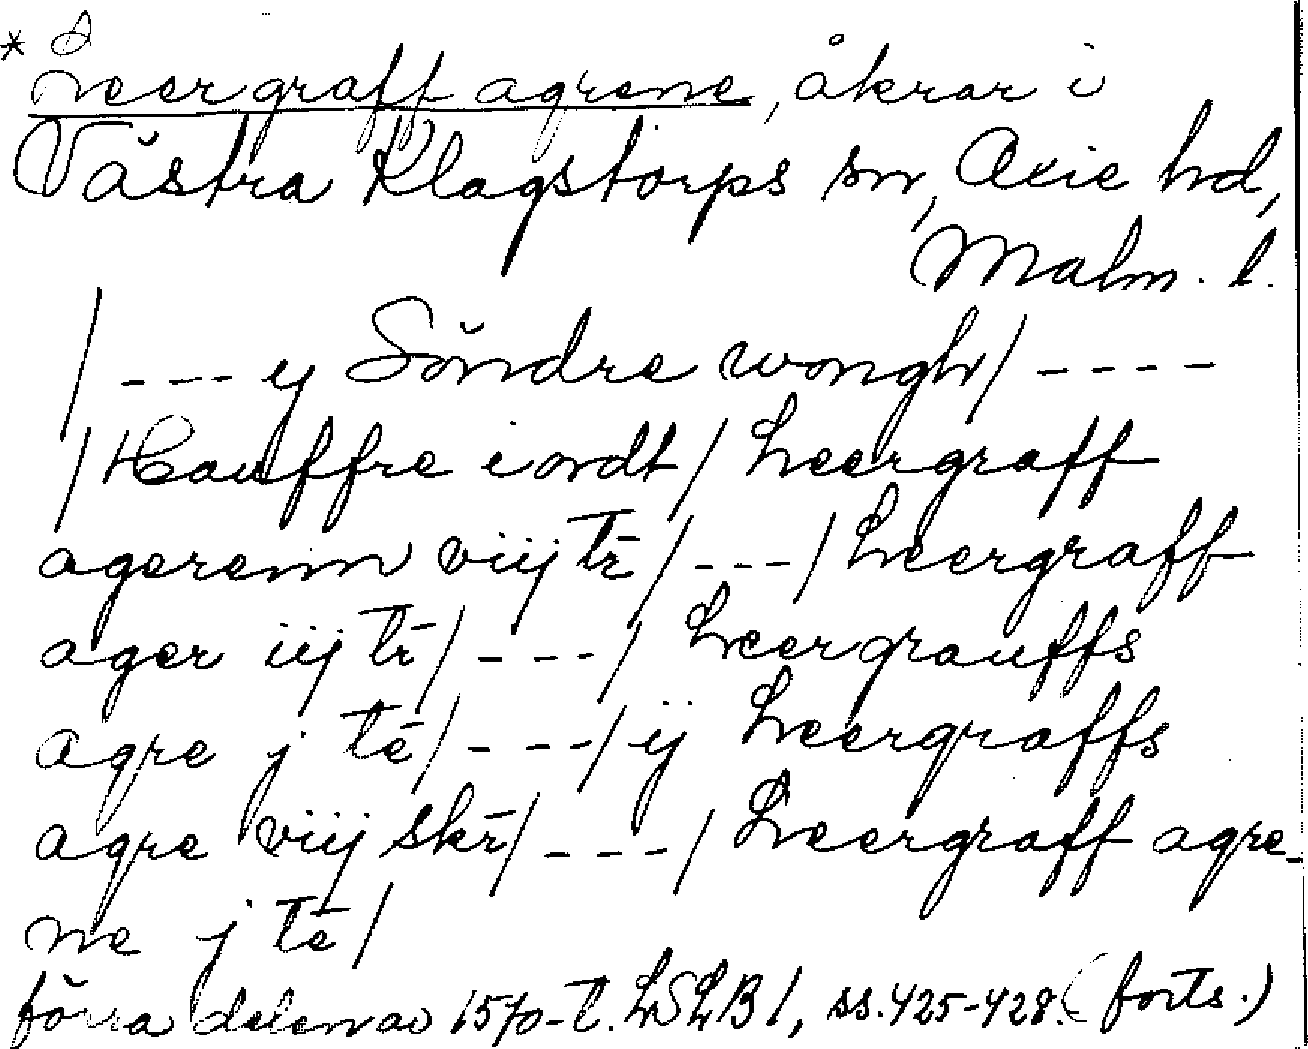 * Leergraff agrene, åkrar i
Västra Klagstorps sn, Oxie hd,
Malm. l.
/ --- ij Söndre wongh / ----
/ Hauffre iordt / Leergraff
agerenn viij tr̄ / --- / Leergraff
ager iij tr̄ / --- / Leergrauffs
agre j tē / --- / ij Leergraffs
agre viij skr̄ / --- / Leergraff agre-
ne j tē /
förra delen av 1570-t. LSLB 1, ss. 425-428. (forts.)